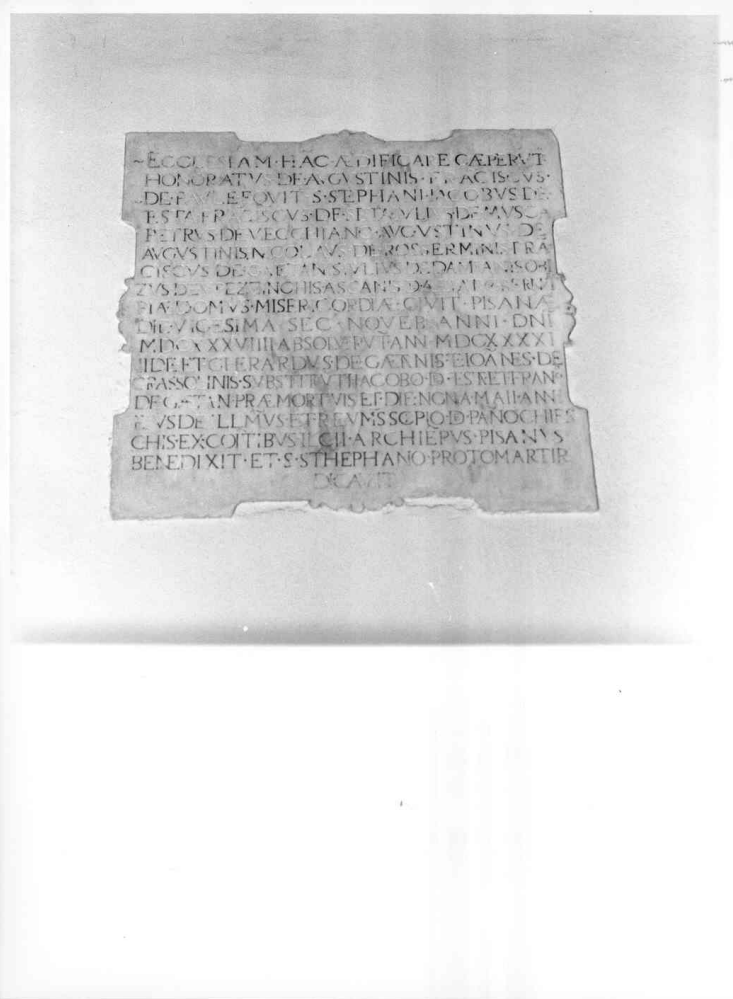 ECCLESIAM · HAC · ÆDIFICARE CÆPERVT
HONORATVS DE AVGVSTINIS · FRACISCVS ·
DE · EQVIT S · STEPHANI · IACOBVS DE
FRACISCVS · DE · DE MVSCA
PETRVS DE VECCHIANO · AVGVSTINVS DE
AVGVSTINIS, NICOLAVS DE ROSSERMINI · FRA
CISCVS DE GAETANIS, IVLIVS DE DAMIANIS ORI
ZVS DE
PIÆ DOMVS · MISERICORDIÆ · CIVIT · PISANÆ
DIE VIGESIMA SEC · NOVEB · ANNI · DNI
MDCXXXVIIII ABSOLVERVT ANN · MDCXXXXI
IIDE ET GHERARDVS · DE GÆRNIS · E IOANES · DE
GRASSOLINIS · SVBSTITVTI IACOBO · D ·
DE GAETAN · PRÆMORTVIS ET DIE · NONA · MAII · ANNI
EIVSDE ILLMVS · ET · REVMS SCIPIO · D · PANOCHIES
CHIS · EX · COITIBVS ILCII · ARCHIEPVS · PISANVS
BENEDIXIT · ET · S · STHEPHANO · PROTOMARTIR
DICAVIT